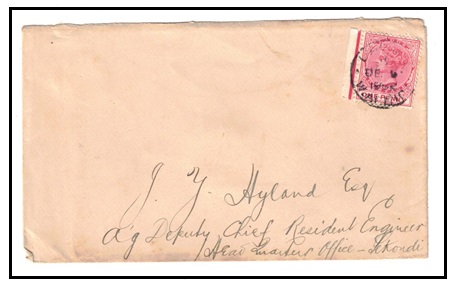 J. Y. Hyland Esq
A'g Deputy Chief Resident Engineer
Head Quarters Office - Sekondi
DE 9